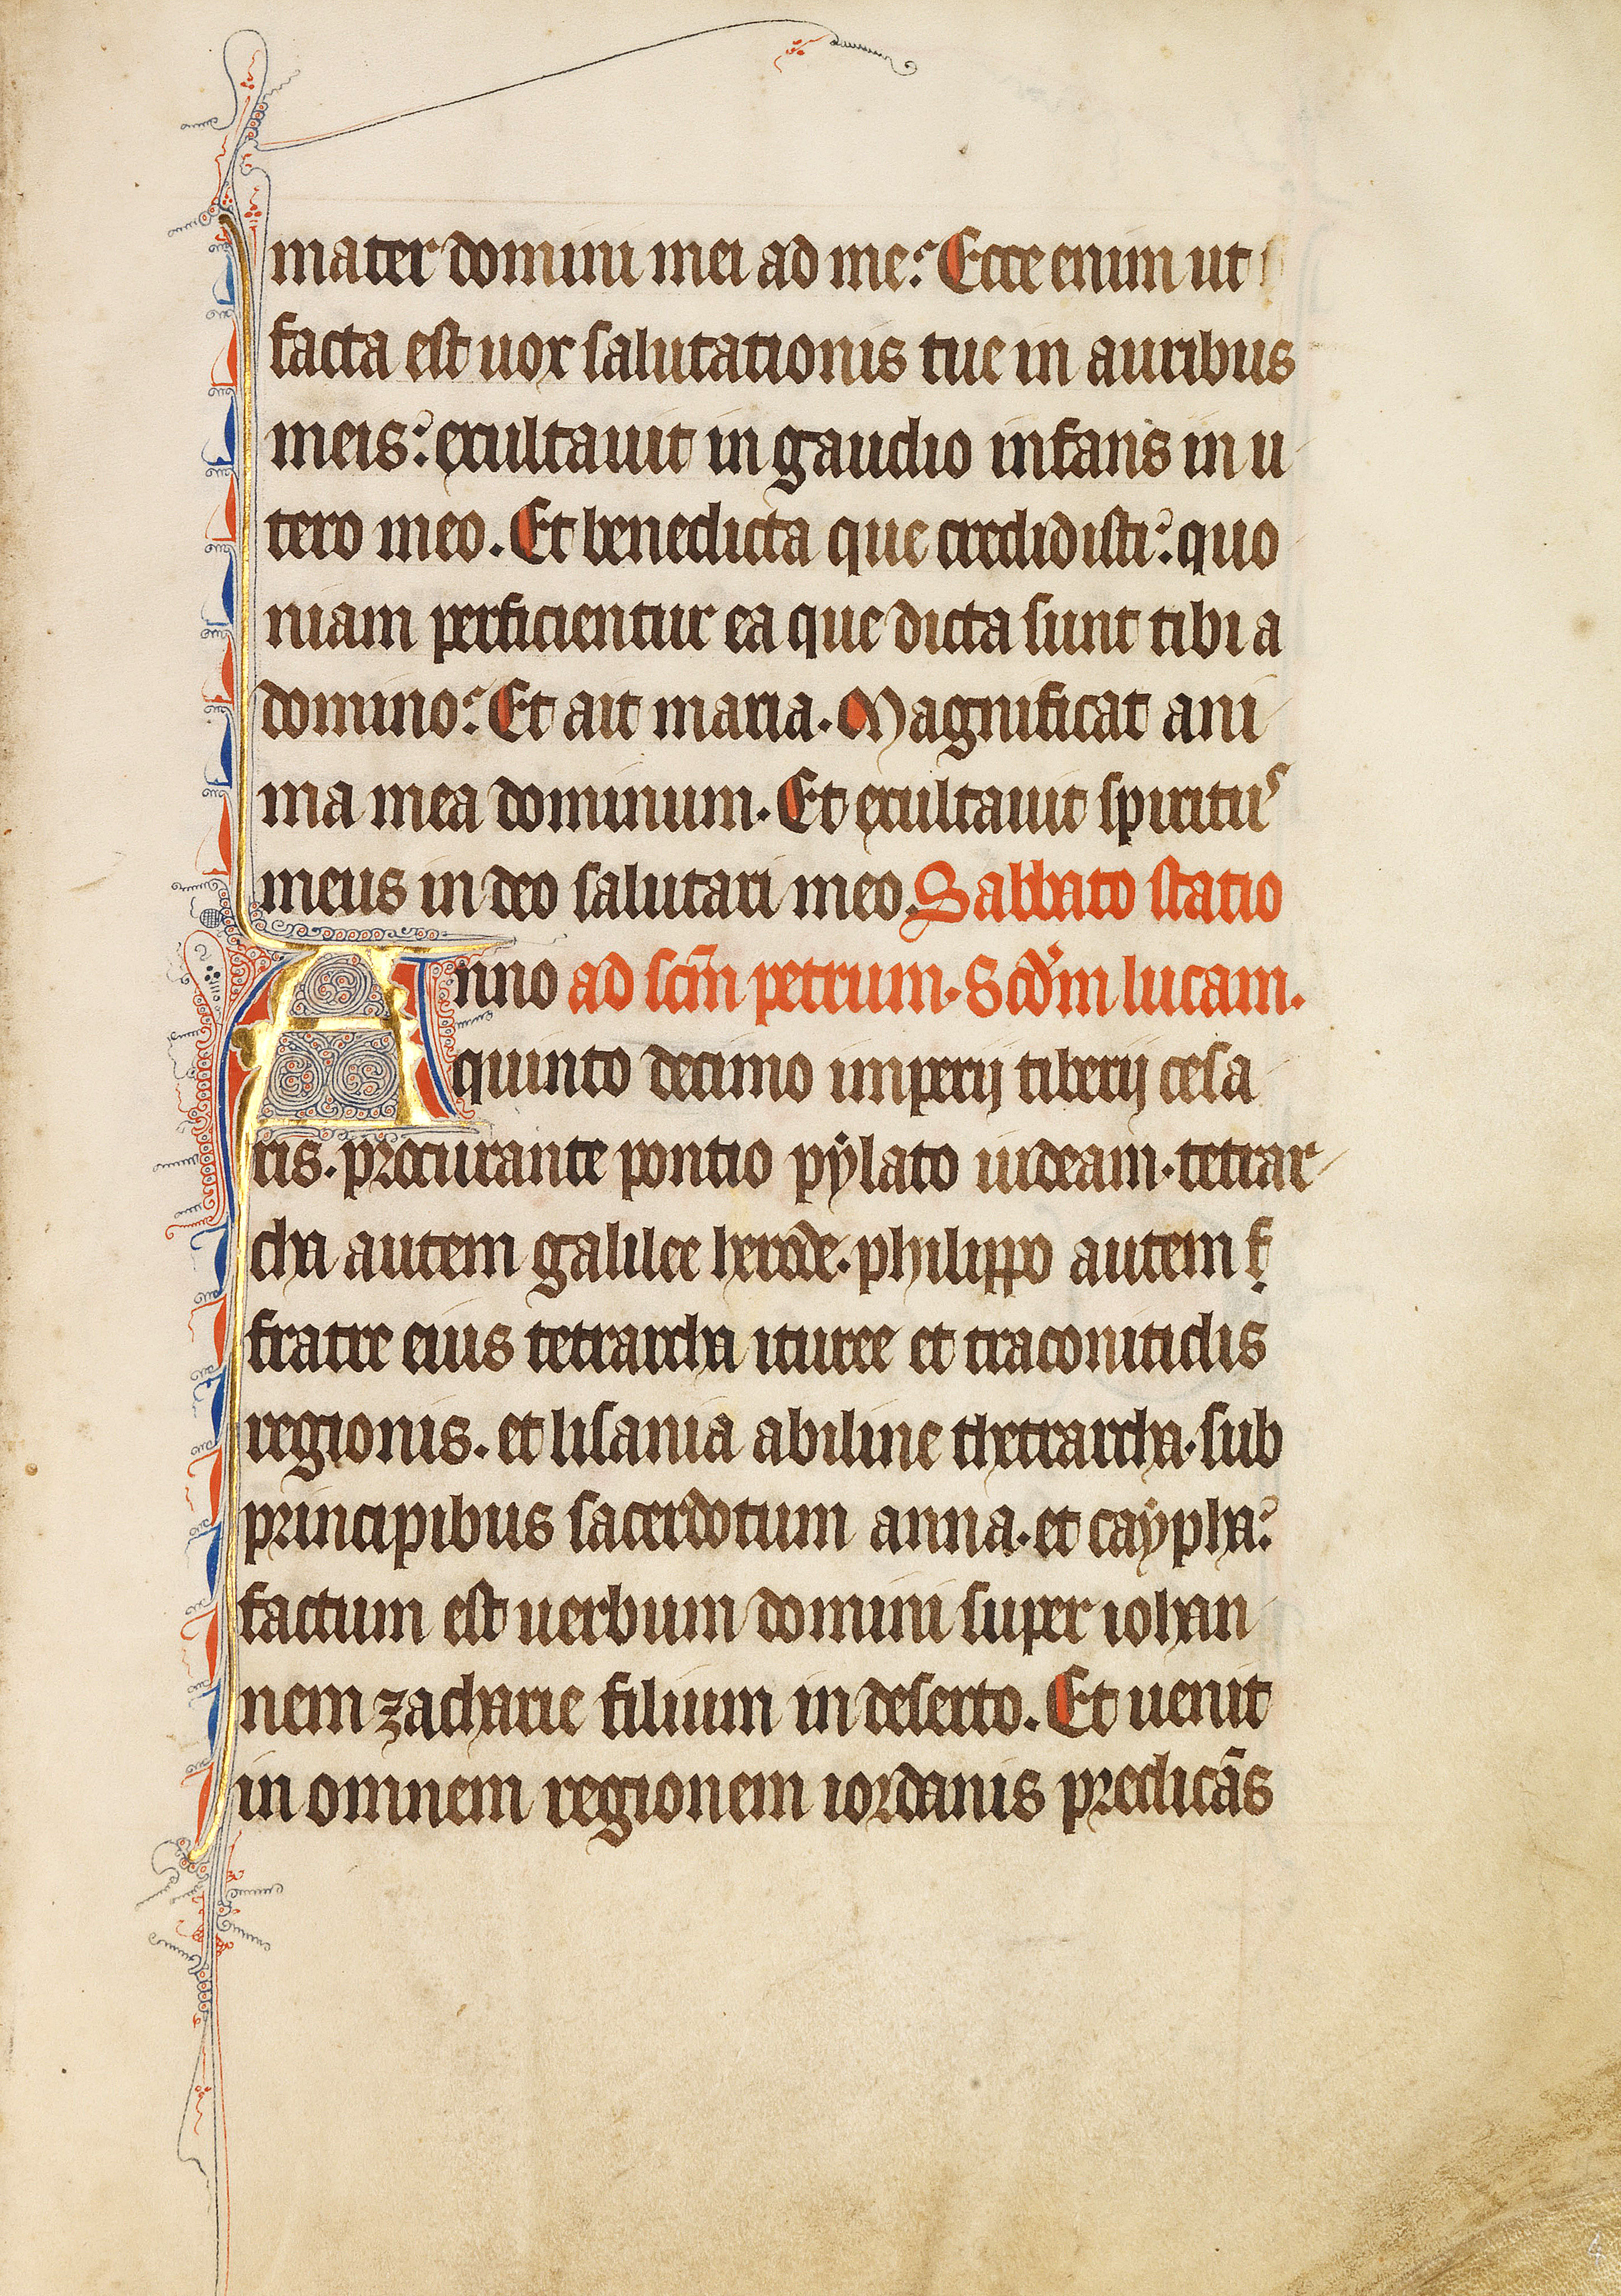 mater domini mei ad me? Ecce enim ut
facta est uox salutationis tue in auribus
meis? exultauit in gaudio infans in u
tero meo. Et benedicta que credidisti? quo
niam perficientur ea que dicta sunt tibi a
domino? Et ait maria. Magnificat ani
ma mea dominum. Et exultauit spiritus
meus in deo salutari meo. Sabbato statio
Anno ad scm̄ petrum. Scd̓m lucam.
quinto decimo imperij tiberij cesa
ris. procurante pontio pẏlato iudeam. tetrar
cha autem galilee herode. philippo autem f̣
fratre eius tetrarcha ituree et traconitidis
regionis. et lisania abiline thetrarcha. sub
principibus sacerdotum anna. et caẏpha?
factum est uerbum domini super iohan
nem zacharie filium in deserto. Et uenit
in omnem regionem iordanis predicās